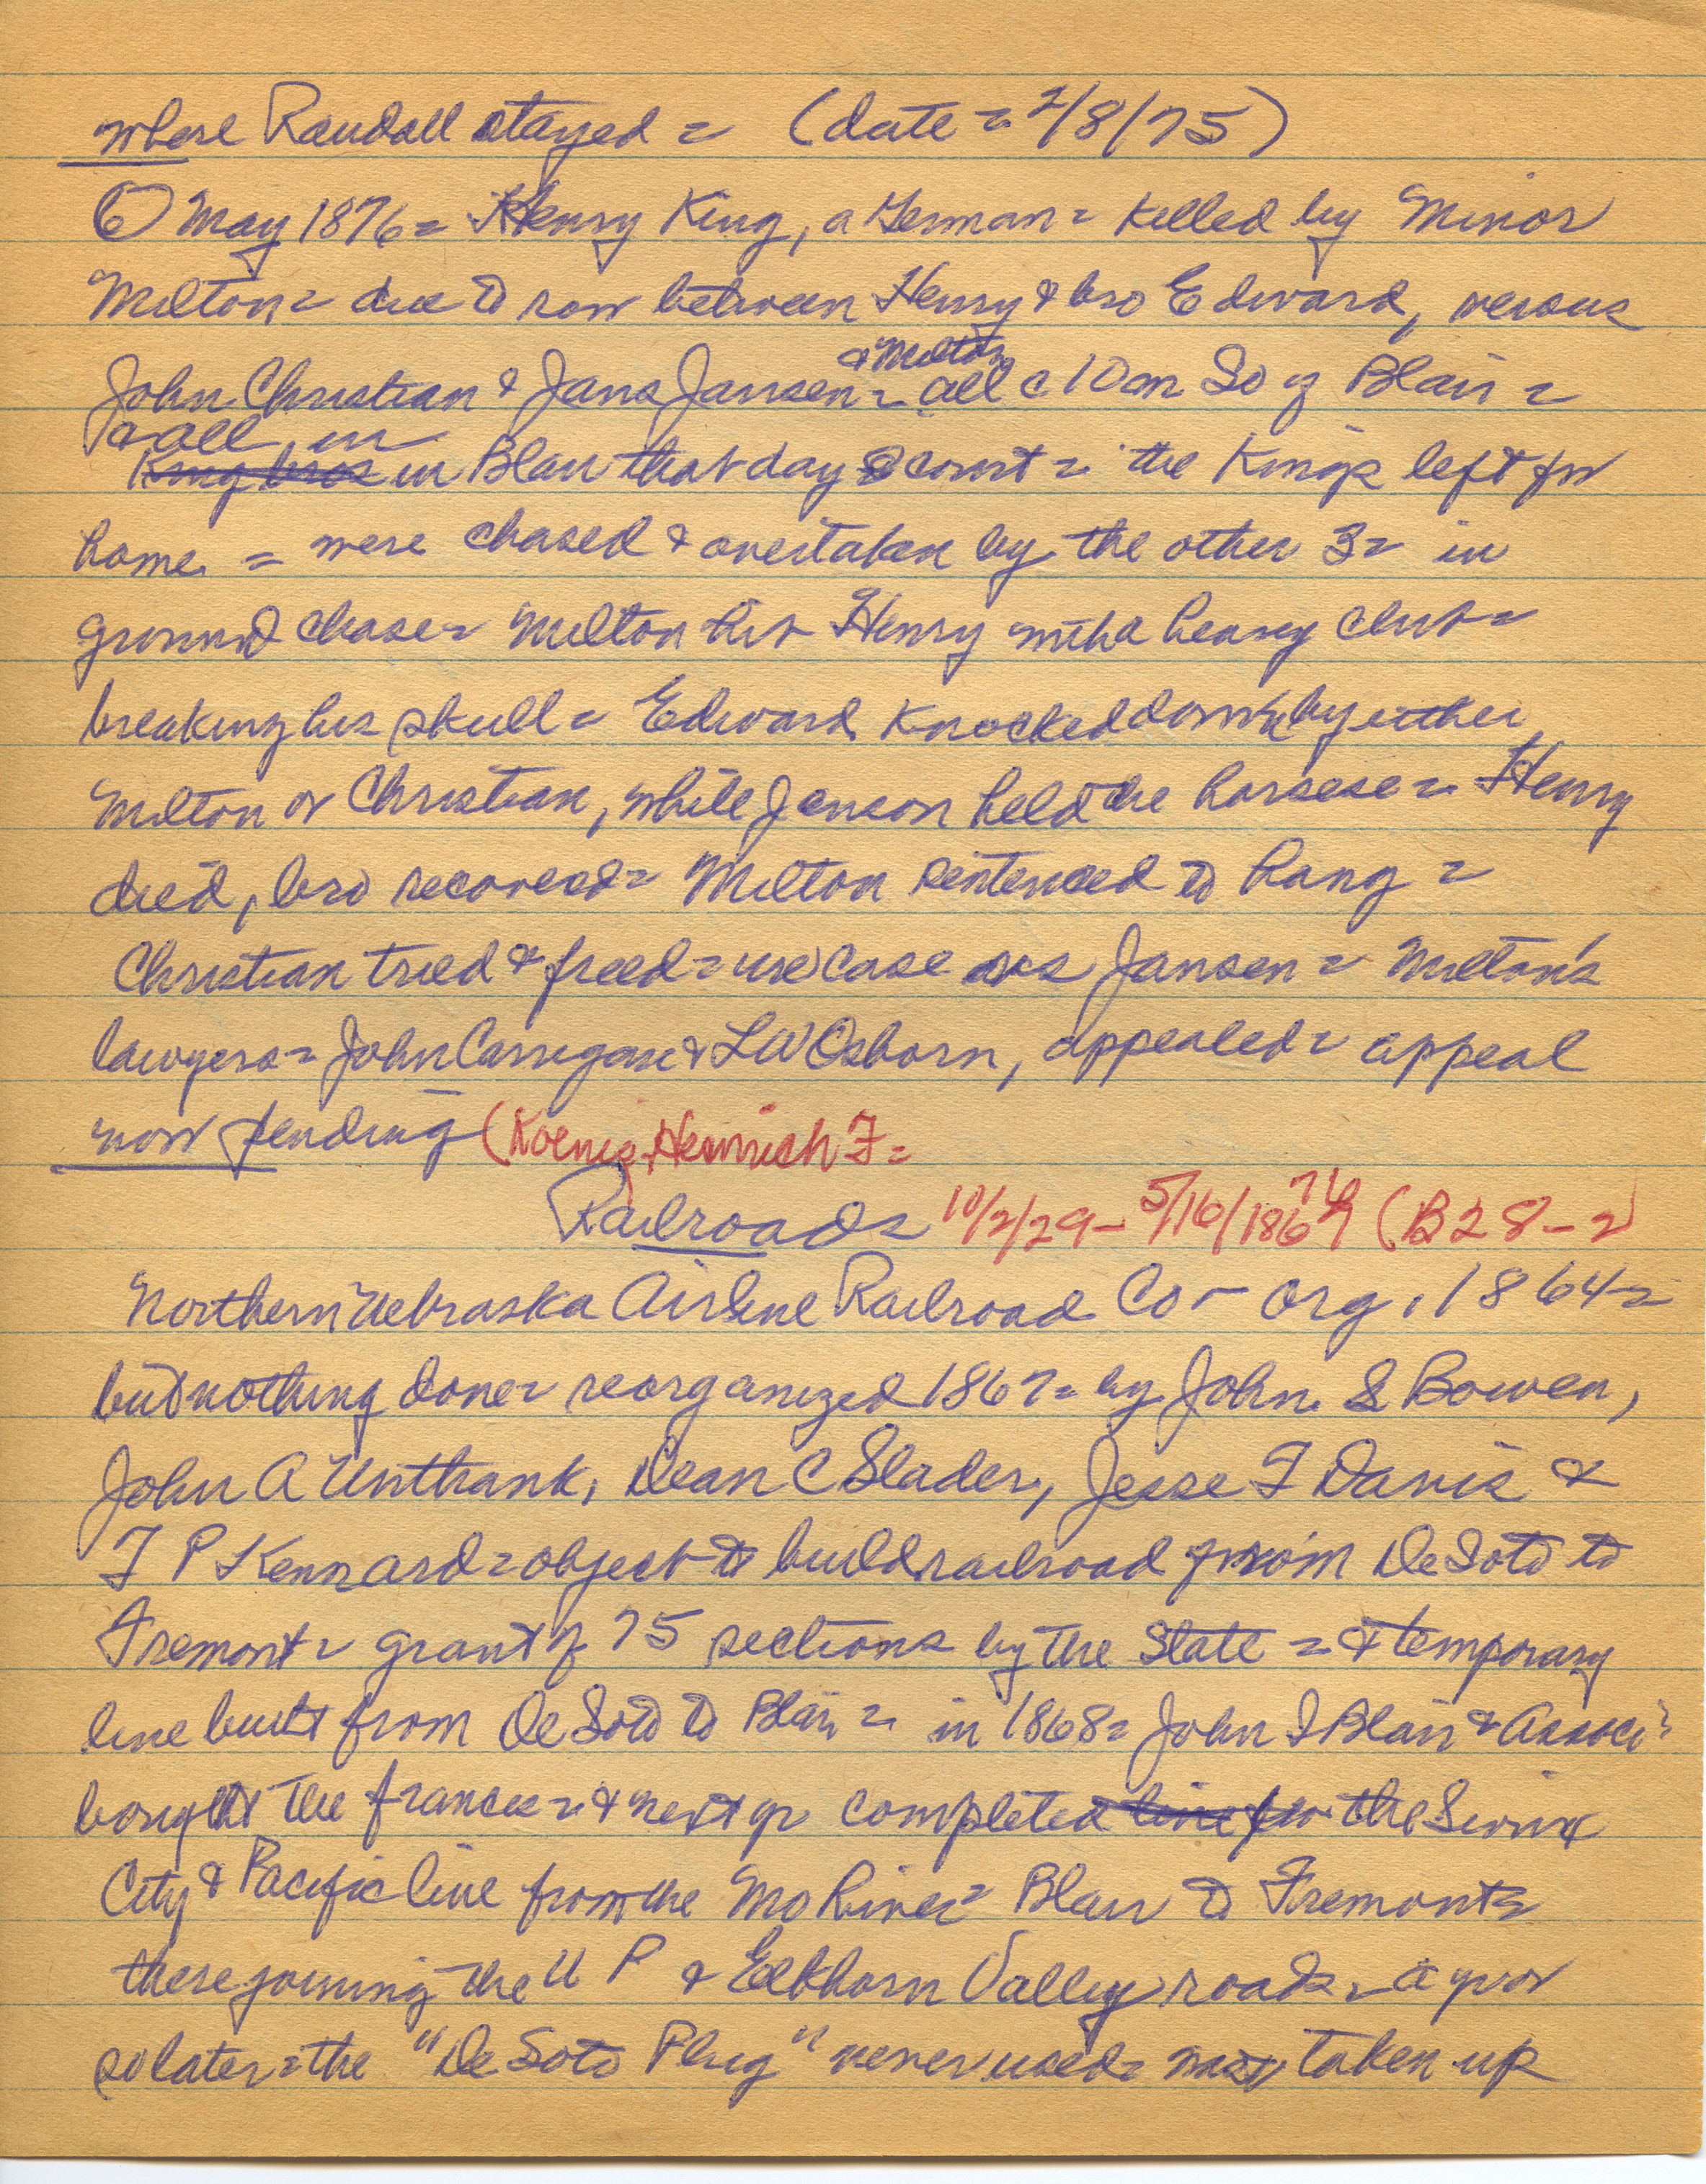 where Randall stayed = (date = 2/8/75)
6) May 1876 = Henry King, a German = killed by Minor
Milton = due to row between Henry & bro Edward, versus
& Milton
John Christian & Jans Jansen = all c 10 m So of Blair =
= all in
King bros in Blair that day @ court = the Kings left for
home = were chased & overtaken by the other 3 = in
ground chase = Milton hit Henry with a heavy club =
breaking his skull = Edward knocked down by either
Milton or Christian, while Jenson held the horsese = Henry
died, bro recovered = Milton sentenced to hang =
Christian tried & freed = no case vs Jansen = Milton's
lawyers = John Carrigan & LW Osborn, appealed = appeal
now pending (Koenig, Heinrich F =
Railroads 10/2/29 – 5/16/1876 (B28-2)
Northern Nebraska Airline Railroad Co – Org. 1864 =
but nothing done = reorganized 1867 = by John S Bowen,
John A Unthank, Dean C Slader, Jesse T Davis &
T P Kennard = object to build railroad from De Soto to
Fremont = grant of 75 sections by the State = & temporary
line built from De Soto to Blair = in 1868 = John I Blair & Assoc
bought the francise = & next yr completed line for the Sioux
City & Pacific line from the Mo River = Blair to Fremont =
there joining the U P & Elkhorn Valley roads = a year or
so later = the "De Soto Plug" never used = was taken up